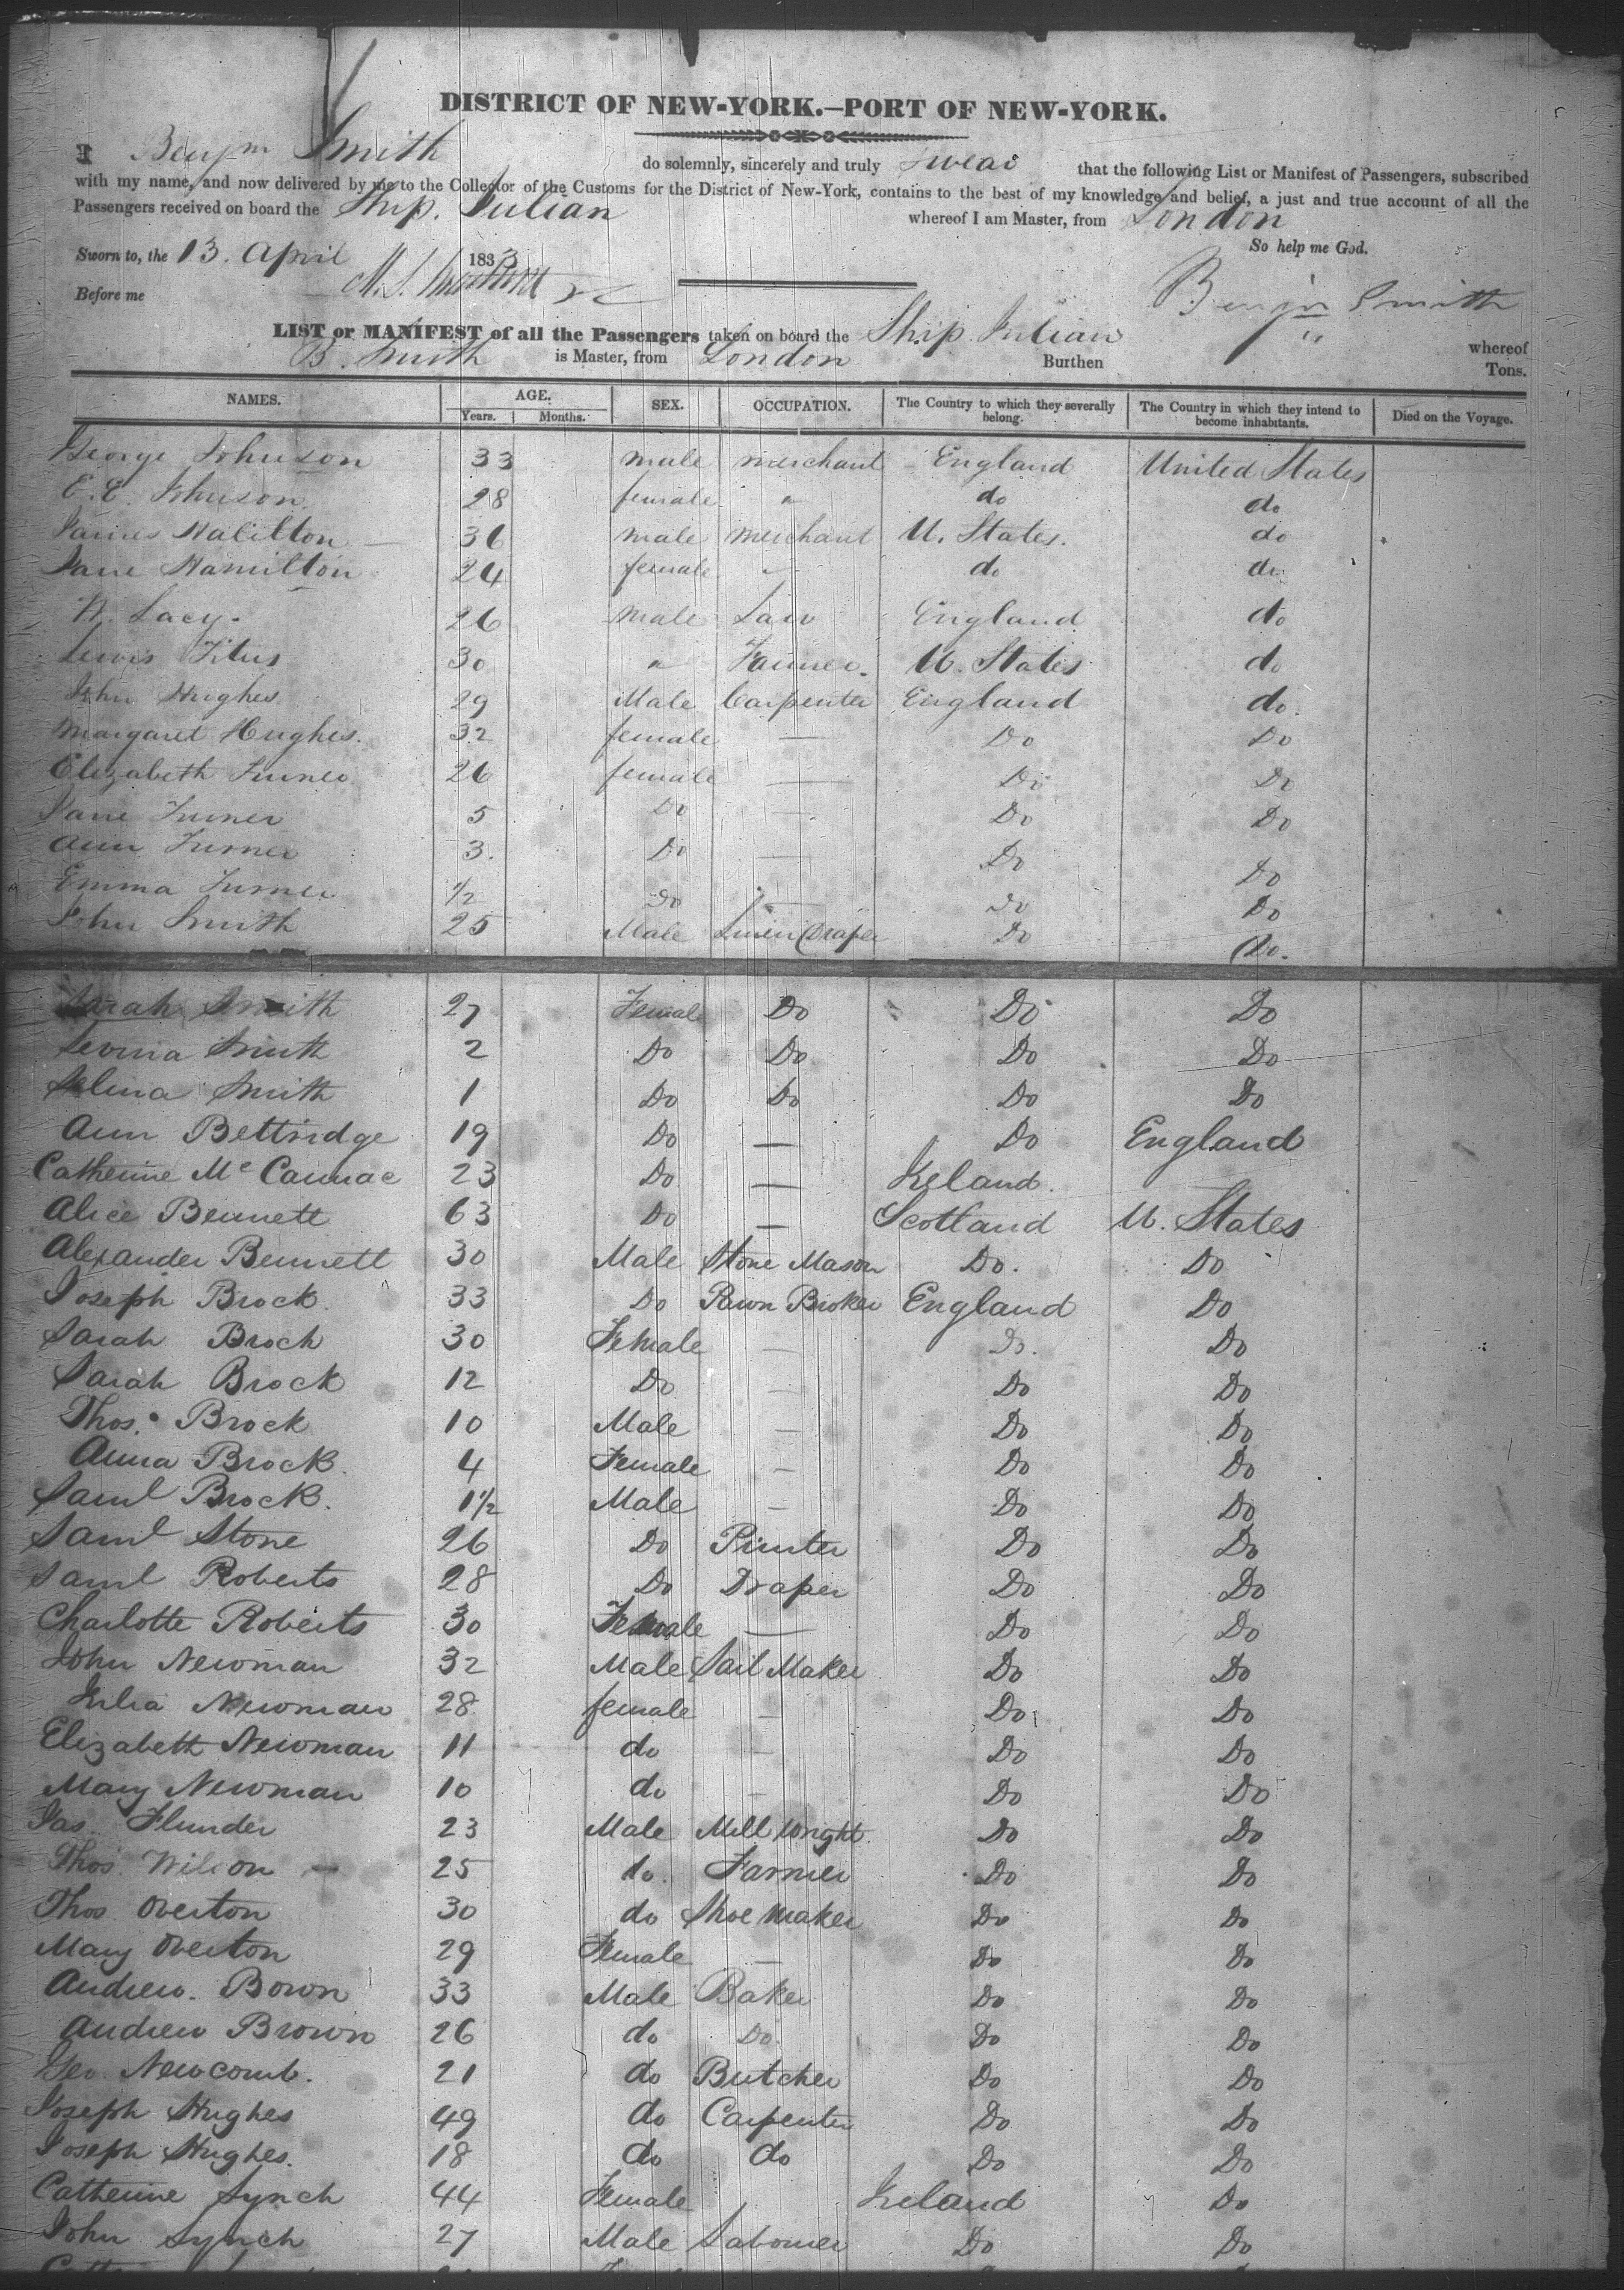 DISTRICT OF NEW-YORK.—PORT OF NEW-YORK.
I Benjm Smith do solemnly, sincerely and truly Swear that the following List or Manifest of Passengers, subscribed
with my name, and now delivered by me to the Collector of the Customs for the District of New-York, contains to the best of my knowledge and belief, a just and true account of all the
Passengers received on board the Ship. Julian whereof I am Master, from London
So help me God.
Sworn to, the 13. April 1833
Before me
Benjm Smith
LIST or MANIFEST of all the Passengers taken on board the Ship Julian whereof
B. Smith is Master, from London Burthen " Tons.
NAMES. AGE. Years. Months. SEX. OCCUPATION. The Country to which they severally belong. The Country in which they intend to become inhabitants. Died on the Voyage.
George Johnson 33 male merchant England United States
E.E. Johnson 28 female " do do
James Halilton 36 male merchant U. States. do
Jane Hamilton 24 female — do do
W. Lacy. 26 male Law England do
Lewis Titus 30 " Farmer. U. States do
John Hughes 29 Male Carpenter England do.
Margaret Hughes. 32 female — Do Do
Elizabeth Turner 26 female — Do Do
Jane Turner 5 Do — Do Do
Ann Turner 3. Do — Do Do
Emma Turner 1/2 Do — Do Do
John Smith 25 Male Linen Draper Do Do.
Sarah Smith 27 Female Do Do Do
Smith 2 Do Do Do Do
Selina Smith 1 Do Do Do Do
Ann Bettridge 19 Do — Do England
Catherine 23 Do — Ireland.
Alice Bennett 63 Do — Scotland U. States
Alexander Bennett 30 Male Stone Mason Do. Do
Joseph Brock 33 Do Pawn Broker England Do
Sarah Brock 30 Female — Do. Do
Sarah Brock 12 Do — Do Do
Thos. Brock 10 Male — Do Do
Anna Brock. 4 Female — Do Do
Saml Brock. 1 1/2 Male — Do Do
Saml Stone 26 Do Printer Do Do
Saml Roberts 28 Do Draper Do Do
Charlotte Roberts 30 Female — Do Do
John Newman 32 Male Sail Maker Do Do
Julia Newman 28 female — Do Do
Elizabeth Newman 11 do — Do Do
Mary Newman 10 do — Do Do
Jas. Flunder 23 Male Mill Wright Do Do
Thos. Wilson 25 do. Farmer Do Do
Thos Overton 30 do Shoe Maker Do Do
Mary Overton 29 Female — Do Do
Andrew. Bown 33 Male Baker Do Do
Andrew Brown 26 do Do Do Do
Geo. Newcomb. 21 do Butcher Do Do
Joseph Hughes 49 do Carpenter Do Do
Joseph Hughes. 18 do do Do Do
Catherine Lynch 44 Female Ireland Do
John Lynch 27 Male Labourer Do Do